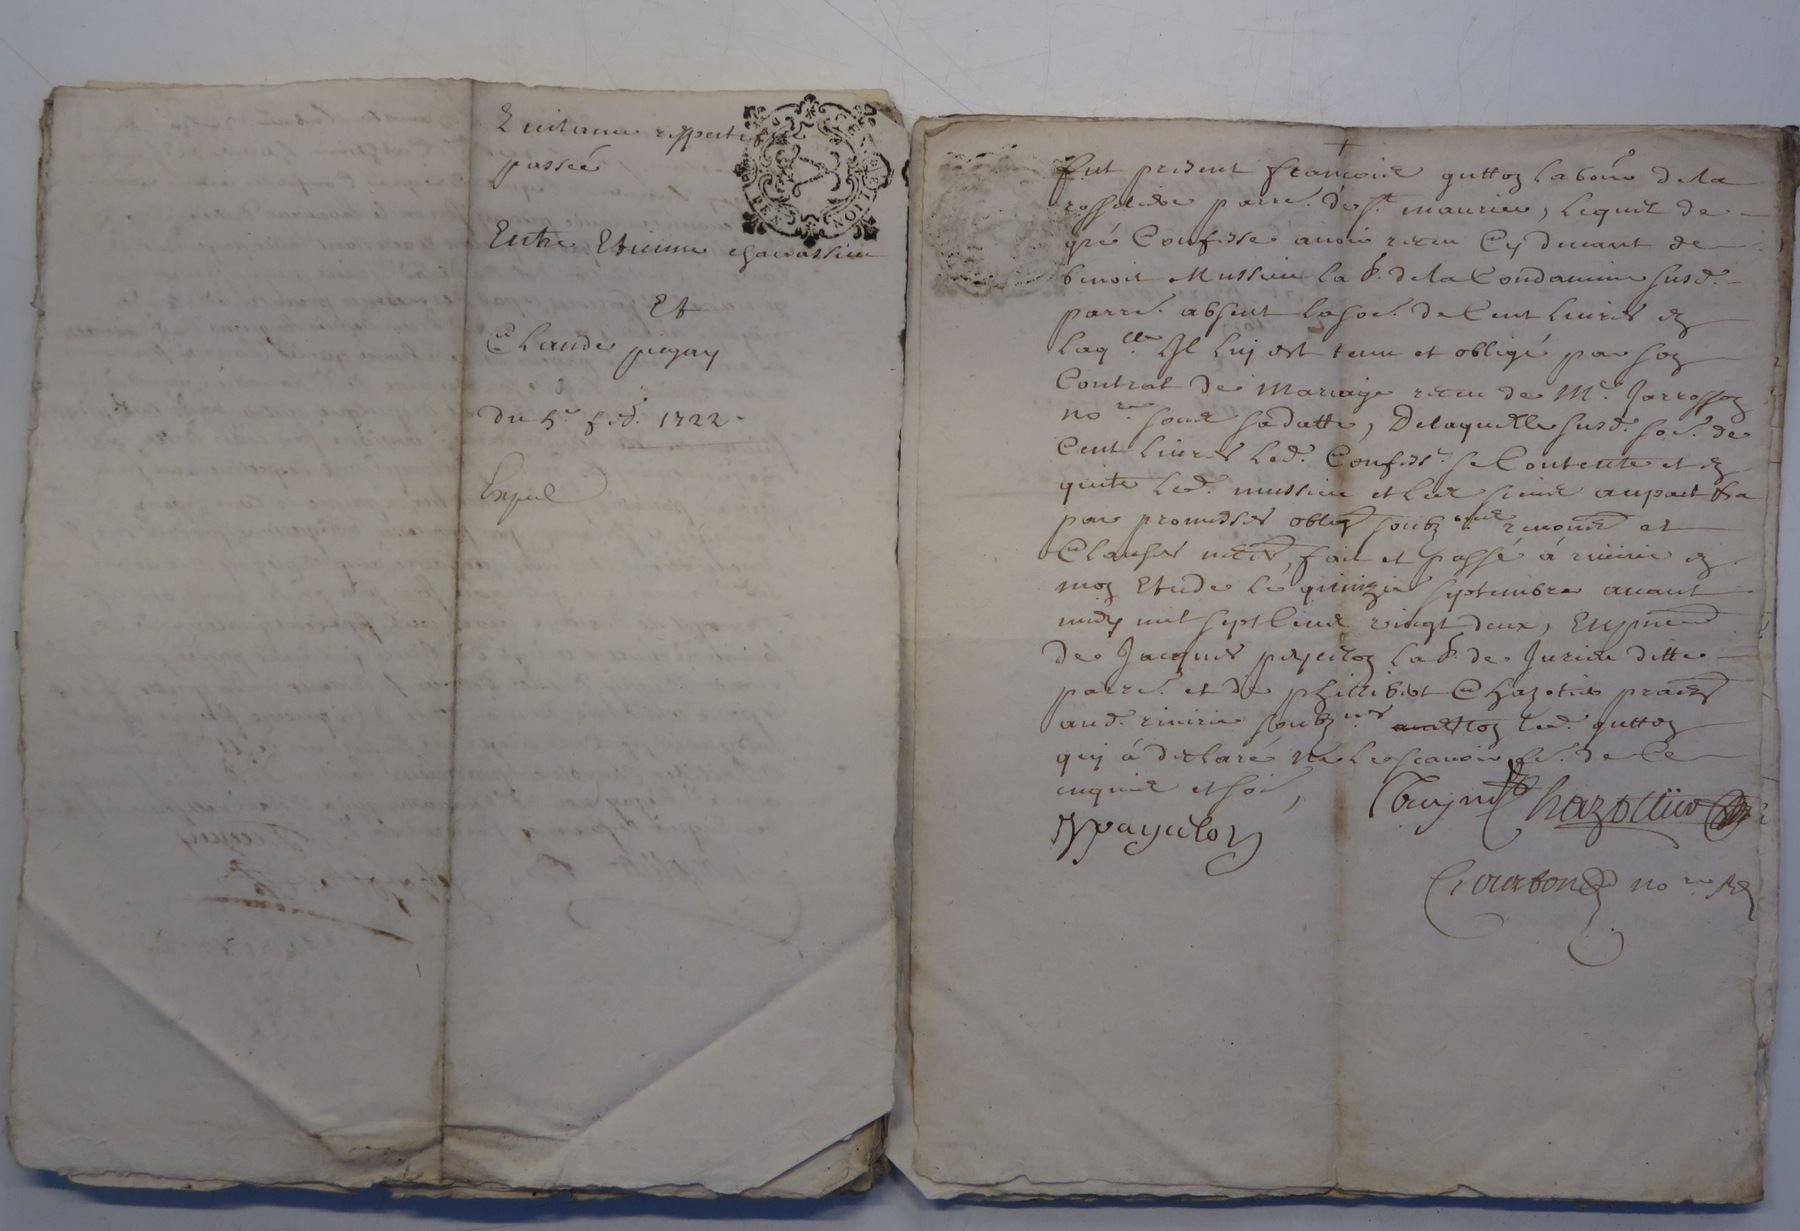 Quitance respective
passée
Entre Etienne chavassieu
Et
Claude pugny
du 5e fed. 1722
Exped
fut present françois guttoy labour de la
rossilière parre. de st maurice, lequel de
gré Confesse avoir receu Cy devant de
benoit Mussieu lab. de la Condamine susd.
parre. absent la som. de Cent livres en
laqlle Il luy est tenu et obligé par son
Contrat de Mariage receu de Me. Jarrosson
nore. sous sa datte, De laquelle susd. som. de
Cent livres led. Confess. se Contente et en
quite led. mussieu et les siens au pact &a
par promesses oblig soubz renon et
Clauses fait et passé à riviere en
mon Etude le quinzie septembre avant
midy mil sept Cens vingt deux, En
de Jacques payulon lab. de Jurieu ditte
parre. et de phillibert Chazotier
aud. riviere soubz non led. guttoy
quy à declaré ne le scavoir de Ce
enquis et som,
payulon
Chazottier
Courbon nore R